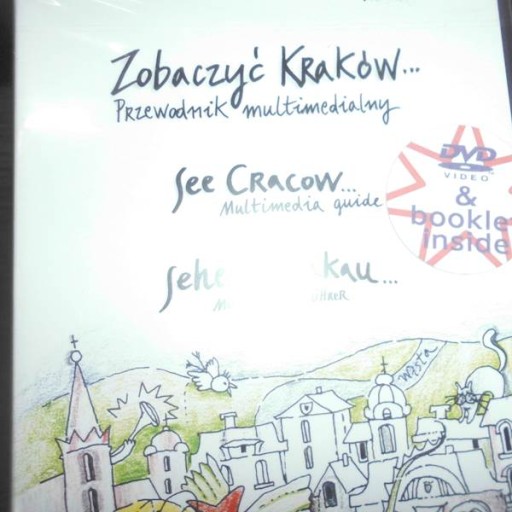 Zobaczyć Kraków...
Przewodnik multimedialny
See Cracow...
Multimedia guide
DVD
VIDEO
&
bookle
inside
Wisła